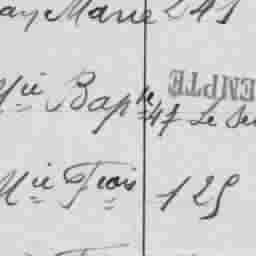 ay Marie 241
Mie Bapte 47 Le Se
EMPTE
Mie Frois 125